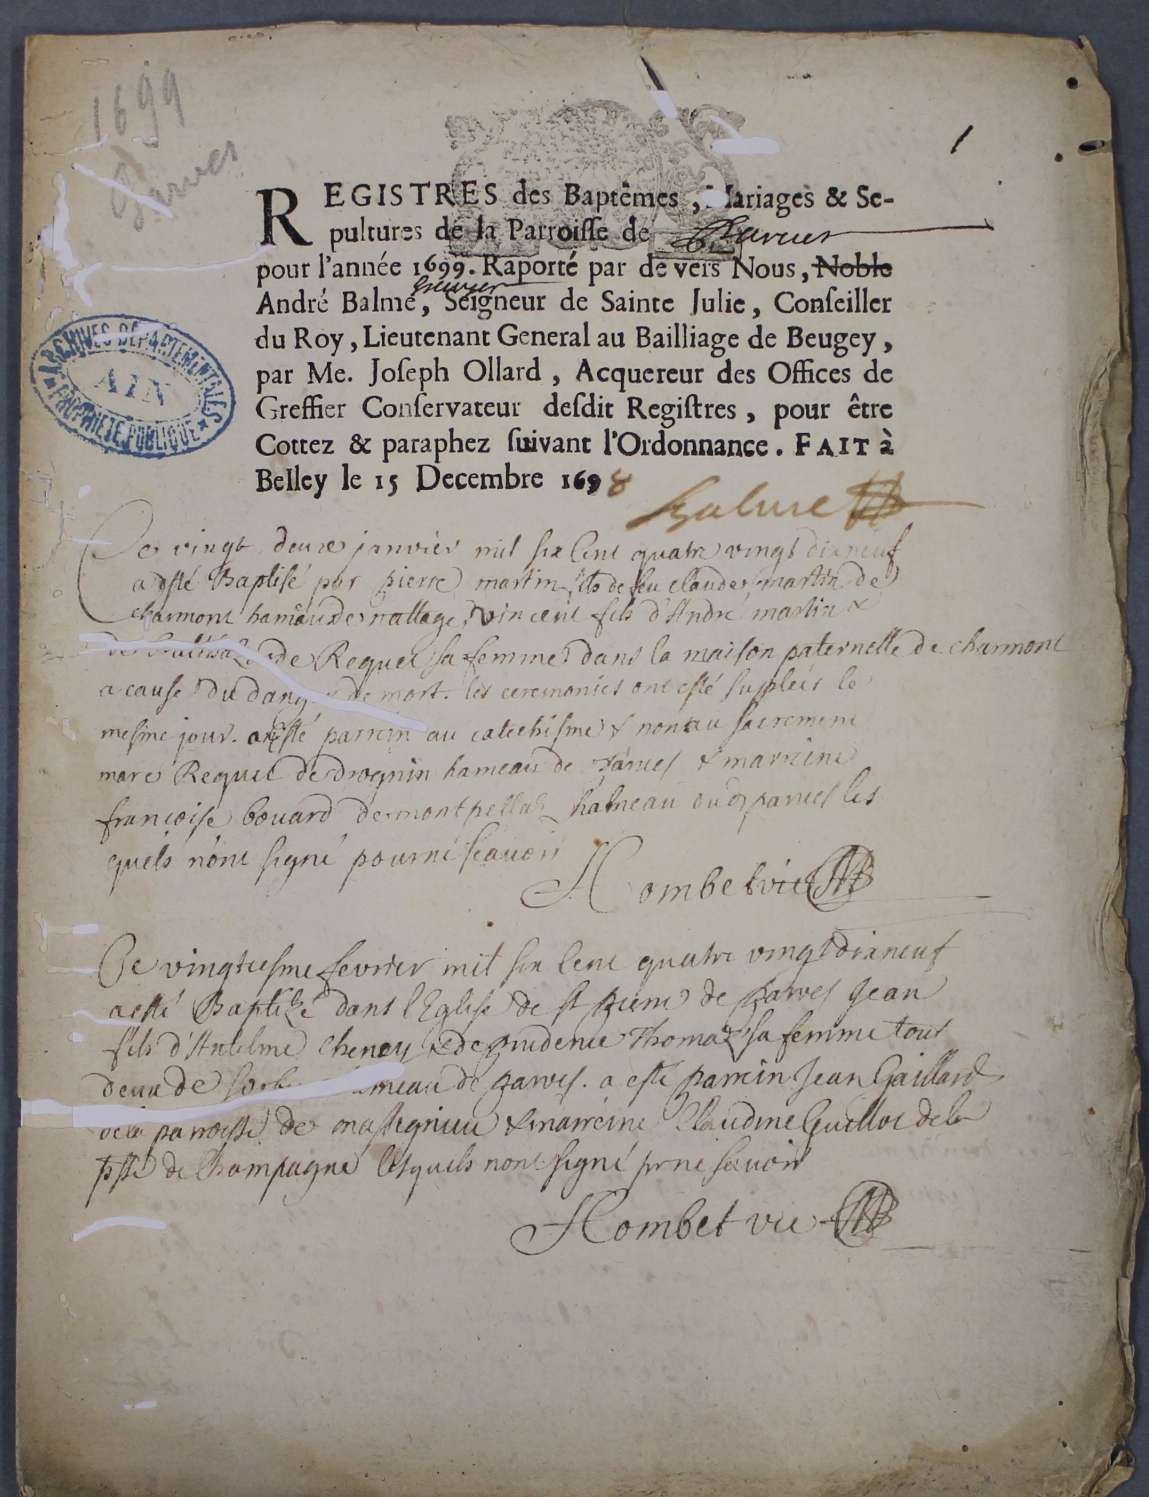 1699
Parves
1
REGISTRES des Baptêmes, Mariages & Se-
pultures de la Parroisse de Parves
pour l'année 1699. Raporté par de vers Nous, Noble
André Balme, Seigneur de Sainte Julie, Conseiller
du Roy, Lieutenant General au Bailliage de Beugey,
par Me. Joseph Ollard, Acquereur des Offices de
Greffier Conservateur desdit Registres, pour être
Cottez & paraphez suivant l'Ordonnance. FAIT à
Belley le 15 Decembre 1698
Balme
ARCHIVES DÉPARTEMENTALES
AIN
PROPRIETE PUBLIQUE
Ce vingt deux janvier mil six cent quatre vingt dixneuf
a esté Baptisé par pierre martin fils de feu claude martin de
charmont hamau de nattage vincent fils d'André martin &
de Requet sa femme dans la maison paternelle de charmont
a cause du danger de mort. les ceremonies ont esté supleés le
mesme jour. a esté parrein au catechisme & non au sacrement
marc Requet de drognin hameau de parves & marreine
françoise bovard de montpellaz hameau dud parves les
quels n'ont signé pour ne scavoir
Hombet vic
Ce vingtiesme fevrier mil six cent quatre vingt dixneuf
a esté Baptizé dans l'Eglise de st pierre de parves Jean
fils d'Antelme Cheney & de prudence Thomaz sa femme tout
deux de hameau de parves. a esté parrein Jean Gaillard
de la parroisse de massignieu & marreine Claudine Guillot de la
psse de Champagne lesquels n'ont signé pr ne scavoir
Hombet vic